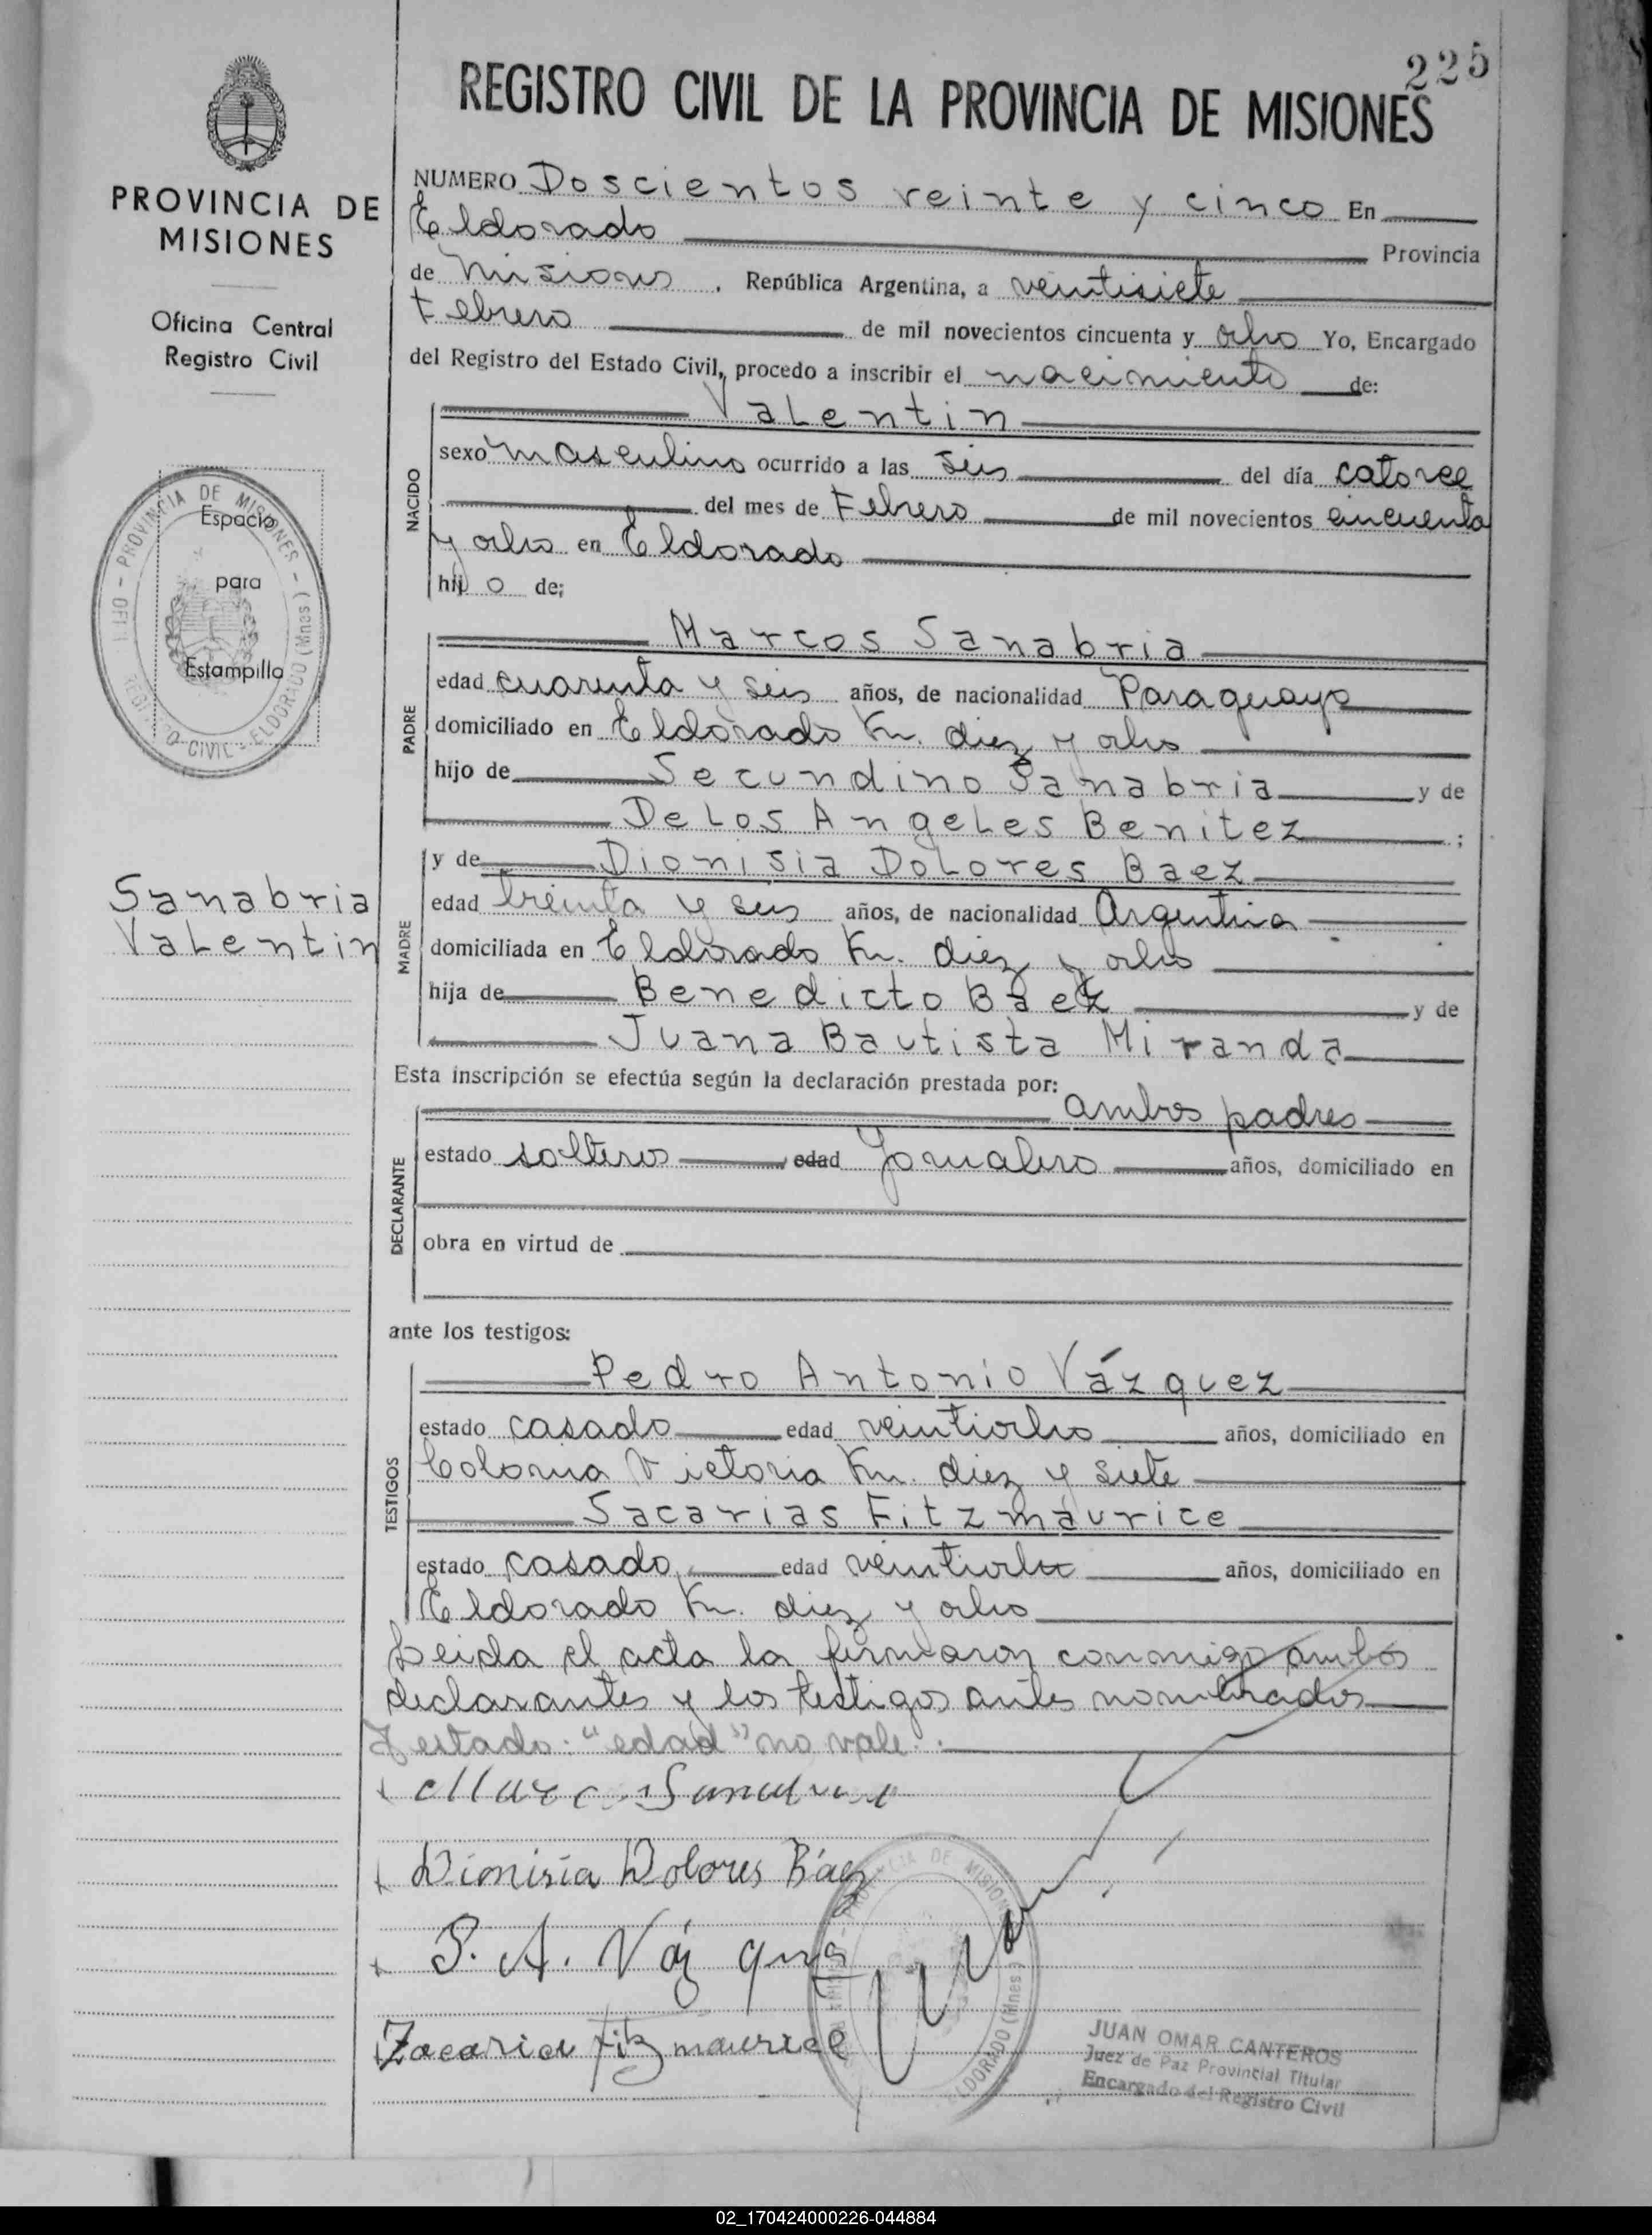 225
REGISTRO CIVIL DE LA PROVINCIA DE MISIONES
PROVINCIA DE
MISIONES
Oficina Central
Registro Civil
NUMERO Doscientos veinte y cinco En
Eldorado Provincia
de Misiones, República Argentina, a veintisiete
Febrero de mil novecientos cincuenta y ocho Yo, Encargado
del Registro del Estado Civil, procedo a inscribir el nacimiento de:
NACIDO
Valentin
sexo masculino ocurrido a las seis del día catorce
del mes de Febrero de mil novecientos cincuenta
y ocho en Eldorado
hijo de;
Espacio
para
Estampilla
PROVINCIA DE MISIONES - ELDORADO (Mnes) REGISTRO CIVIL
PADRE
Marcos Sanabria
edad cuarenta y seis años, de nacionalidad Paraguayo
domiciliado en Eldorado Km. diez y ocho
hijo de Secundino Sanabria y de
De Los Angeles Benitez ;
Sanabria
Valentin
MADRE
y de Dionisia Dolores Baez
edad treinta y seis años, de nacionalidad Argentina
domiciliada en Eldorado Km. diez y ocho
hija de Benedicto Baez y de
Juana Bautista Miranda
Esta inscripción se efectúa según la declaración prestada por:
DECLARANTE
ambos padres
estado solteros edad Jornalero años, domiciliado en
obra en virtud de
ante los testigos:
TESTIGOS
Pedro Antonio Vázquez
estado casado edad veintiocho años, domiciliado en
Colonia Victoria Km. diez y siete
Sacarias Fitzmaurice
estado casado edad veintiocho años, domiciliado en
Eldorado Km. diez y ocho
Leida el acta la firmaron conmigo ambos
declarantes y los testigos antes nombrados
Testado: "edad" no vale.
Marcos Sanabria
Dionisia Dolores Báez
P. A. Vázquez
Zacarias Fitzmaurice
JUAN OMAR CANTEROS
Juez de Paz Provincial Titular
Encargado del Registro Civil
02_170424000226-044884